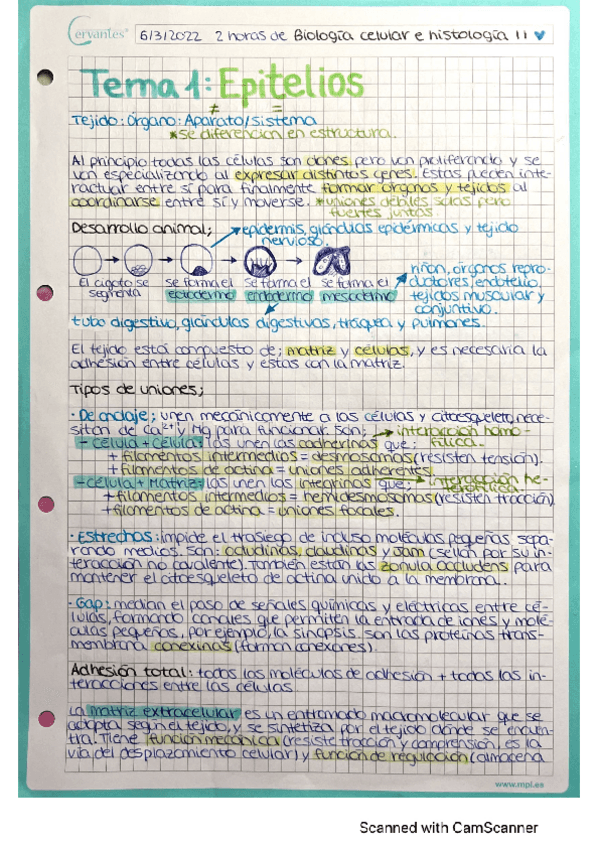 Cervantes 6/3/2022 2 horas de Biología celular e histología II
Tema 1: Epitelios
≠ =
Tejido: Órgano: Aparato/Sistema
*se diferencian en estructura.
Al principio todas las células son clones pero van proliferando y se
van especializando al expresar distintos genes. Estas pueden inte-
ractuar entre sí para finalmente formar órganos y tejidos al
coordinarse entre sí y moverse. *uniones débiles solas pero
fuertes juntas.
Desarrollo animal; epidermis, glándulas epidérmicas y tejido
nervioso.
El cigoto se segmenta
se forma el ectodermo
se forma el endodermo
se forma el mesodermo
riñón, órganos repro-
ductores, endotelio,
tejidos muscular y
conjuntivo.
tubo digestivo, glándulas digestivas, tráquea y pulmones.
El tejido está compuesto de; matriz y células, y es necesaria la
adhesión entre células y estas con la matriz.
Tipos de uniones;
· De anclaje; unen mecánicamente a las células y citoesqueleto, nece-
sitan de Ca²⁺ y Mg para funcionar. Son; interacción homo-
fílica.
- célula + célula: las unen las cadherinas que;
+ filamentos intermedios = desmosomas (resisten tensión).
+ filamentos de actina = uniones adherentes.
- célula + Matriz: las unen las integrinas que; interacción he-
terofílica
+ filamentos intermedios = hemidesmosomas (resisten tracción)
+ filamentos de actina = uniones focales.
· Estrechas: impide el trasiego de incluso moléculas pequeñas, sepa-
rando medios. Son: ocludinas, claudinas y Jam (sellan por su in-
teracción no covalente). También están las zonula occludens para
mantener el citoesqueleto de actina unido a la membrana.
· Gap: median el paso de señales químicas y eléctricas entre cé-
lulas, formando canales que permiten la entrada de iones y molé-
culas pequeñas, por ejemplo, la sinapsis. Son las proteínas trans-
membrana conexinas (forman conexones).
Adhesión total: todas las moléculas de adhesión + todas las in-
teracciones entre las células.
La matriz extracelular es un entramado macromolecular que se
adapta según el tejido, y se sintetiza por el tejido dónde se encuen-
tra. Tiene función mecánica (resiste tracción y comprensión, es la
vía del desplazamiento celular) y función de regulación (almacena
www.mpl.es
Scanned with CamScanner